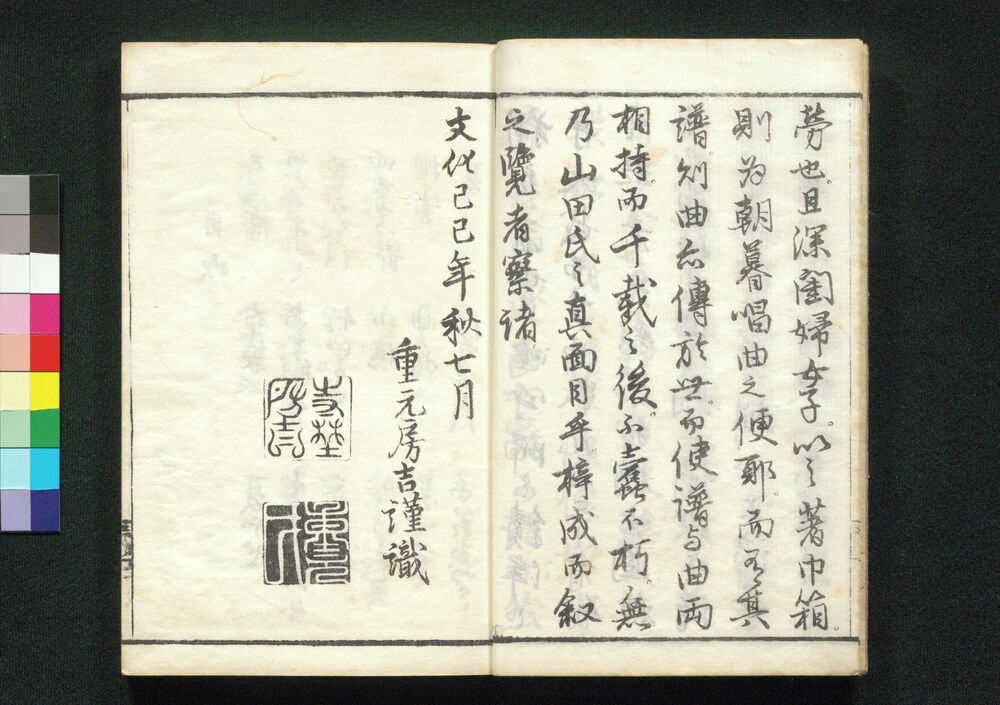 労也。且深閨婦女子。以之著巾箱。
則為朝暮唱曲之便耶。而為其
譜則曲亦傳於世。而使譜与曲兩
相持。而千載之後。不蠹不朽。無
乃山田氏之真面目乎。梓成而叙
之。覽者察諸
文化己巳年秋七月
重元房吉謹識